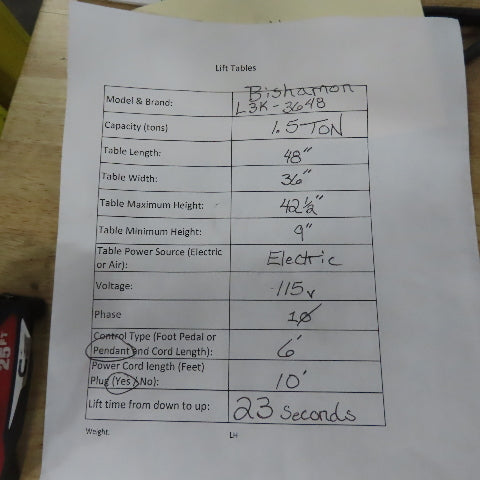 Lift Tables
Bishamon
Model & Brand: L3K-3648
Capacity (tons) 1.5-TON
Table Length: 48"
Table Width: 36"
Table Maximum Height: 42 1/2"
Table Minimum Height: 9"
Table Power Source (Electric
or Air): Electric
Voltage: 115v
Phase 1Ø
Control Type (Foot Pedal or
Pendant end Cord Length): 6'
Power Cord length (Feet)
Plug (Yes / No): 10'
Lift time from down to up: 23 Seconds
Weight: LH
25FT